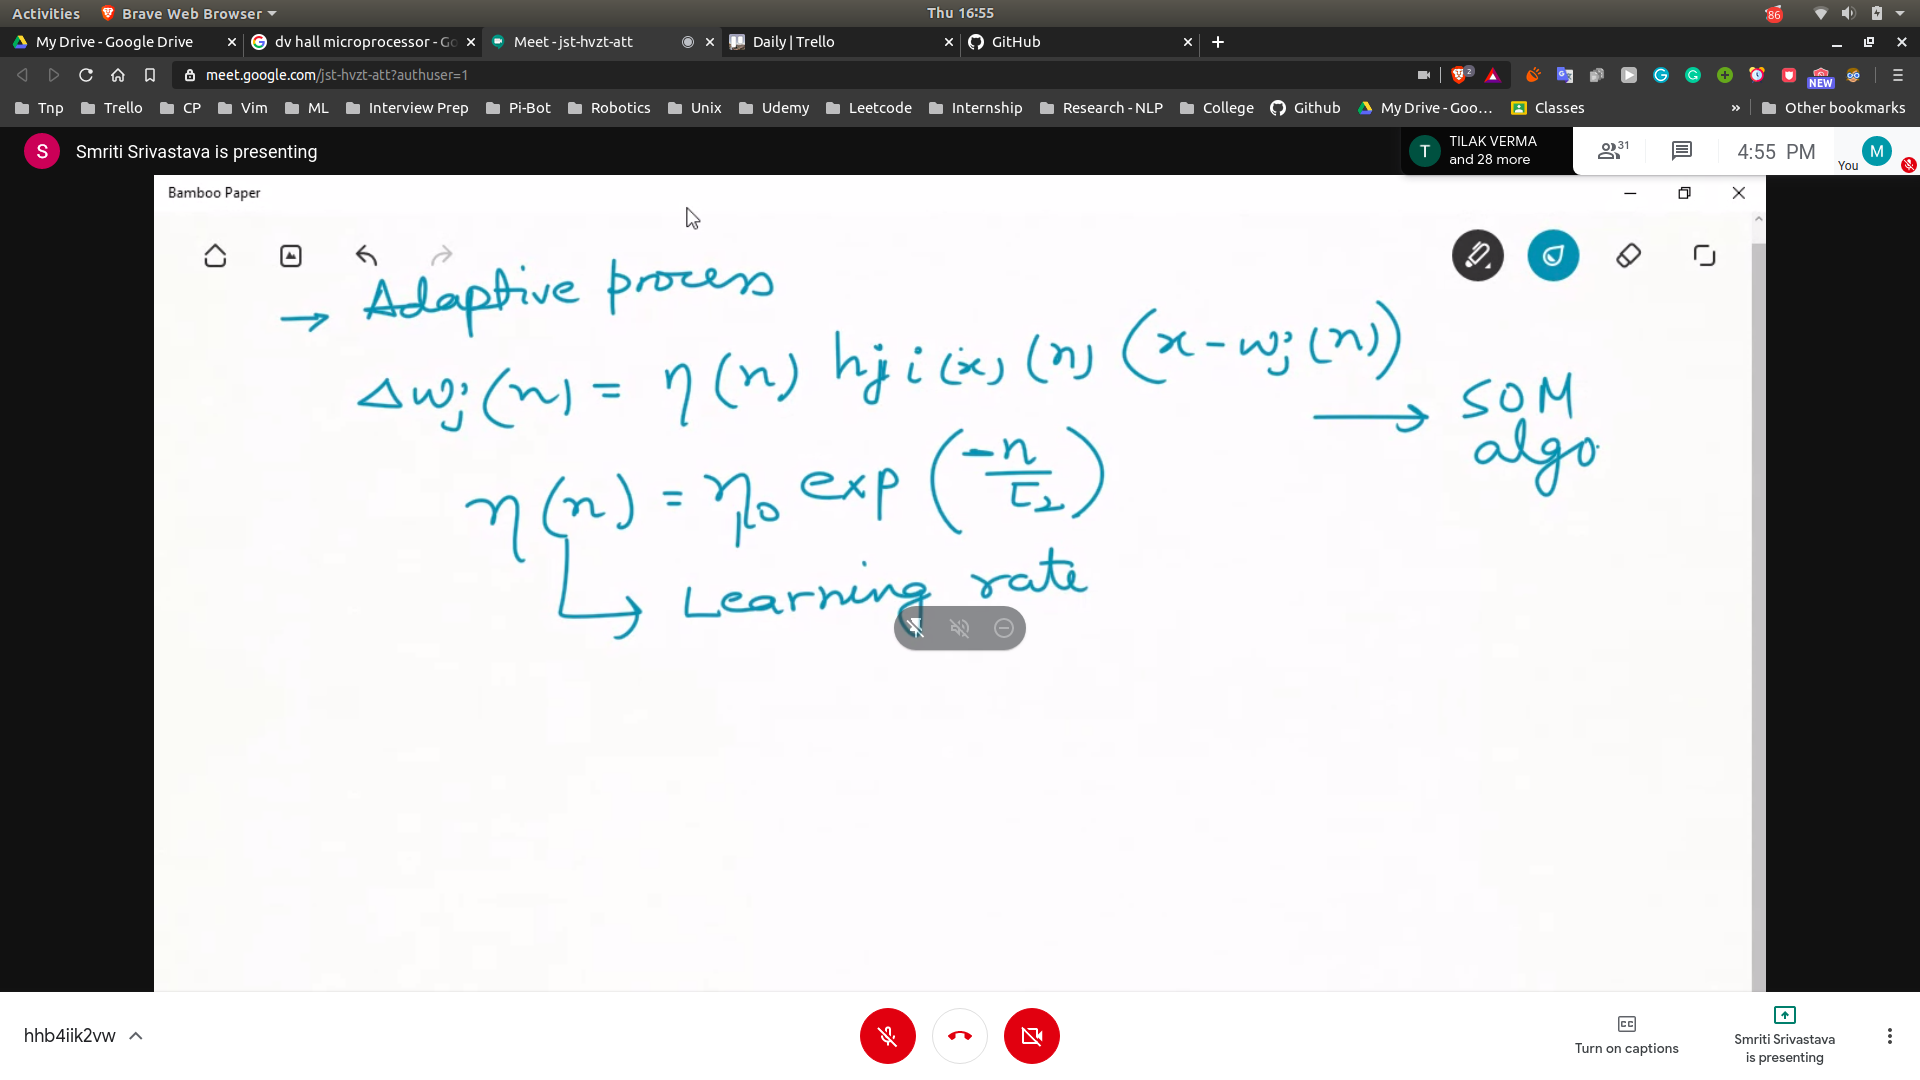 Activities Brave Web Browser Thu 16:55 86
My Drive - Google Drive dv hall microprocessor - Go Meet - jst-hvzt-att Daily | Trello GitHub
meet.google.com/jst-hvzt-att?authuser=1 2 NEW
Tnp Trello CP Vim ML Interview Prep Pi-Bot Robotics Unix Udemy Leetcode Internship Research - NLP College Github My Drive - Goo... Classes » Other bookmarks
S Smriti Srivastava is presenting T TILAK VERMA and 28 more 31 4:55 PM You M
Bamboo Paper
→ Adaptive process
Δwj(n) = η(n) hj i(x) (n) (x - wj(n))
→ SOM
algo.
η(n) = η0 exp (-n/τ2)
↳ Learning rate
hhb4iik2vw
CC
Turn on captions
Smriti Srivastava
is presenting